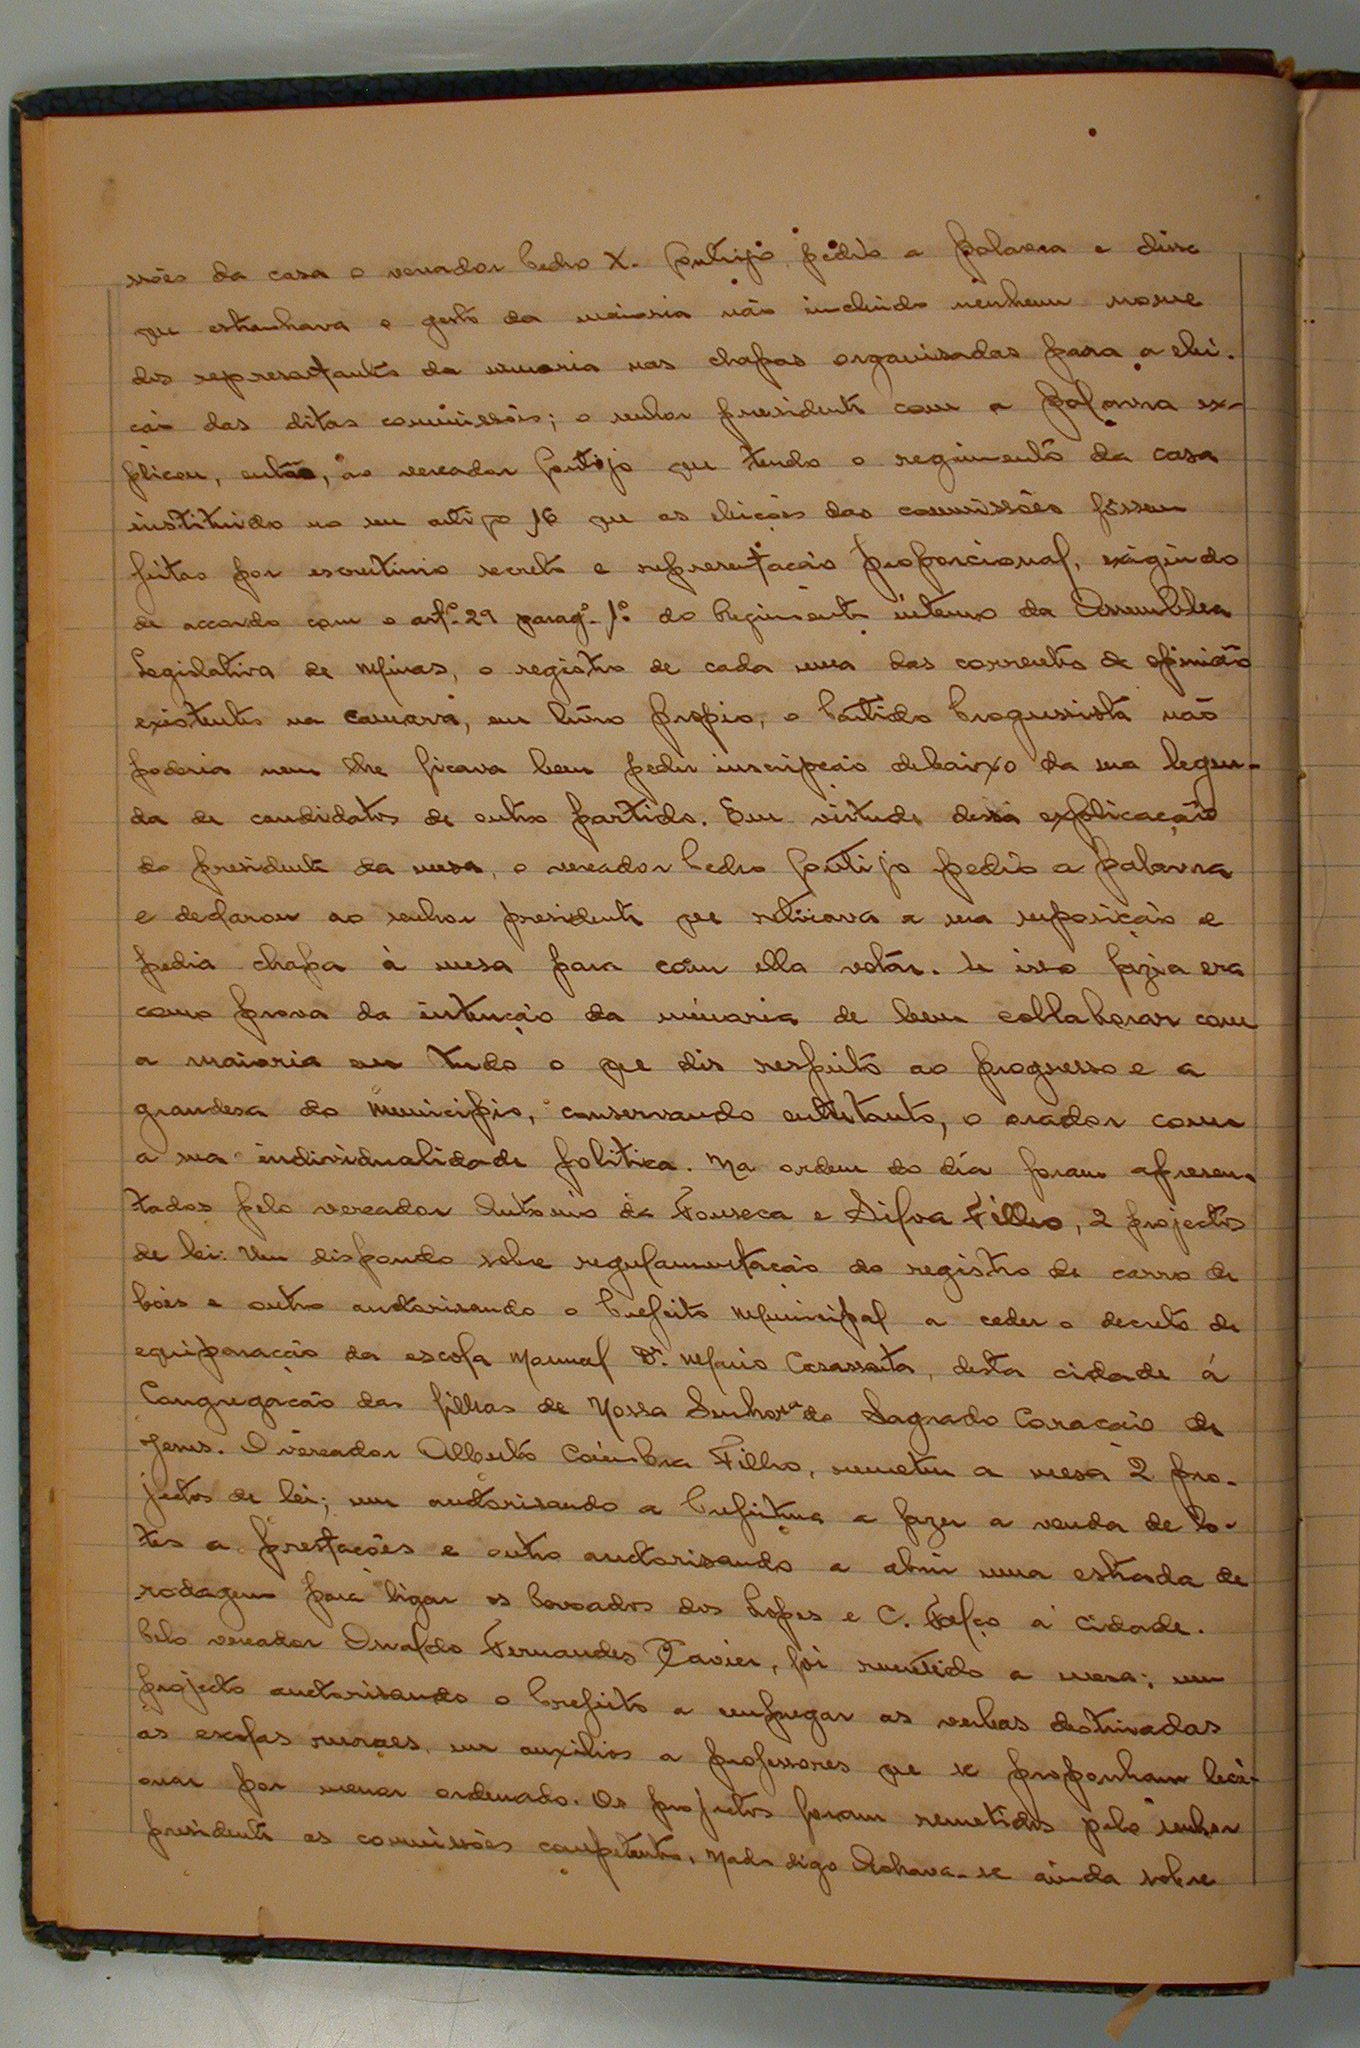 ssões da casa o vereador Pedro X. Gontijo, pedio a palavra e disse
que estranhava o gesto da maioria não incluindo nenhum nome
dos representantes da minoria nas chapas organisadas para a elei-
ção das ditas commissões; o senhor presidente com a palavra ex-
plicou, então, ao vereador Gontijo que tendo o regimento da casa
instituido no seu artigo 16 que as eleições das commissões fôssem
feitas por escrutinio secreto e representação proporcional, exigindo
de accordo com o artº. 29 paragº. 1º do Regimento interno da Assembléa
Legislativa de Minas, o registro de cada uma das correntes de opinião
existentes na camara, em livro propio, o Partido Progressista não
poderia nem lhe ficava bem pedir inscripção debaixo da sua legen-
da de candidatos de outro partido. Em virtude dessa explicação
do presidente da mesa, o vereador Pedro Gontijo pedio a palavra
e declarou ao senhor presidente que retirava a sua supposição e
pedia chapa à mesa para com ella votar. Se isso fazia era
como prova da intenção da minoria de bem collaborar com
a maioria em tudo o que dis respeito ao progresso e a
grandesa do municipio, conservando entretanto, o orador com
a sua individualidade politica. Na ordem do dia foram apresen-
tados pelo vereador Antonio da Fonseca e Silva Filho, 2 projectos
de lei. Um dispondo sobre regulamentação do registro de carro de
bois e outro auctorisando o Prefeito Municipal a ceder o decreto de
equiparação da escola Normal Dr. Mario Casassanta, desta cidade á
Congregação das filhas de Nossa Senhora do Sagrado Coração de
Jesus. O vereador Alberto Coimbra Filho, remeteu a mesa 2 pro-
jectos de lei; um auctorisando a Prefeitura a fazer a venda de lo-
tes a prestações e outro auctorisando a abrir uma estrada de
rodagem para ligar os povoados dos Lopes e C. Falço a cidade.
Pelo vereador Osvaldo Fernandes Xavier, foi remetido a mesa; um
projecto auctorisando o Prefeito a empregar as verbas destinadas
as escolas ruraes, em auxilios a professores que se proponham leci-
onar por menor ordenado. Os projectos foram remetidos pelo senhor
presidente as commissões competentes. Nada digo Achava-se ainda sobre